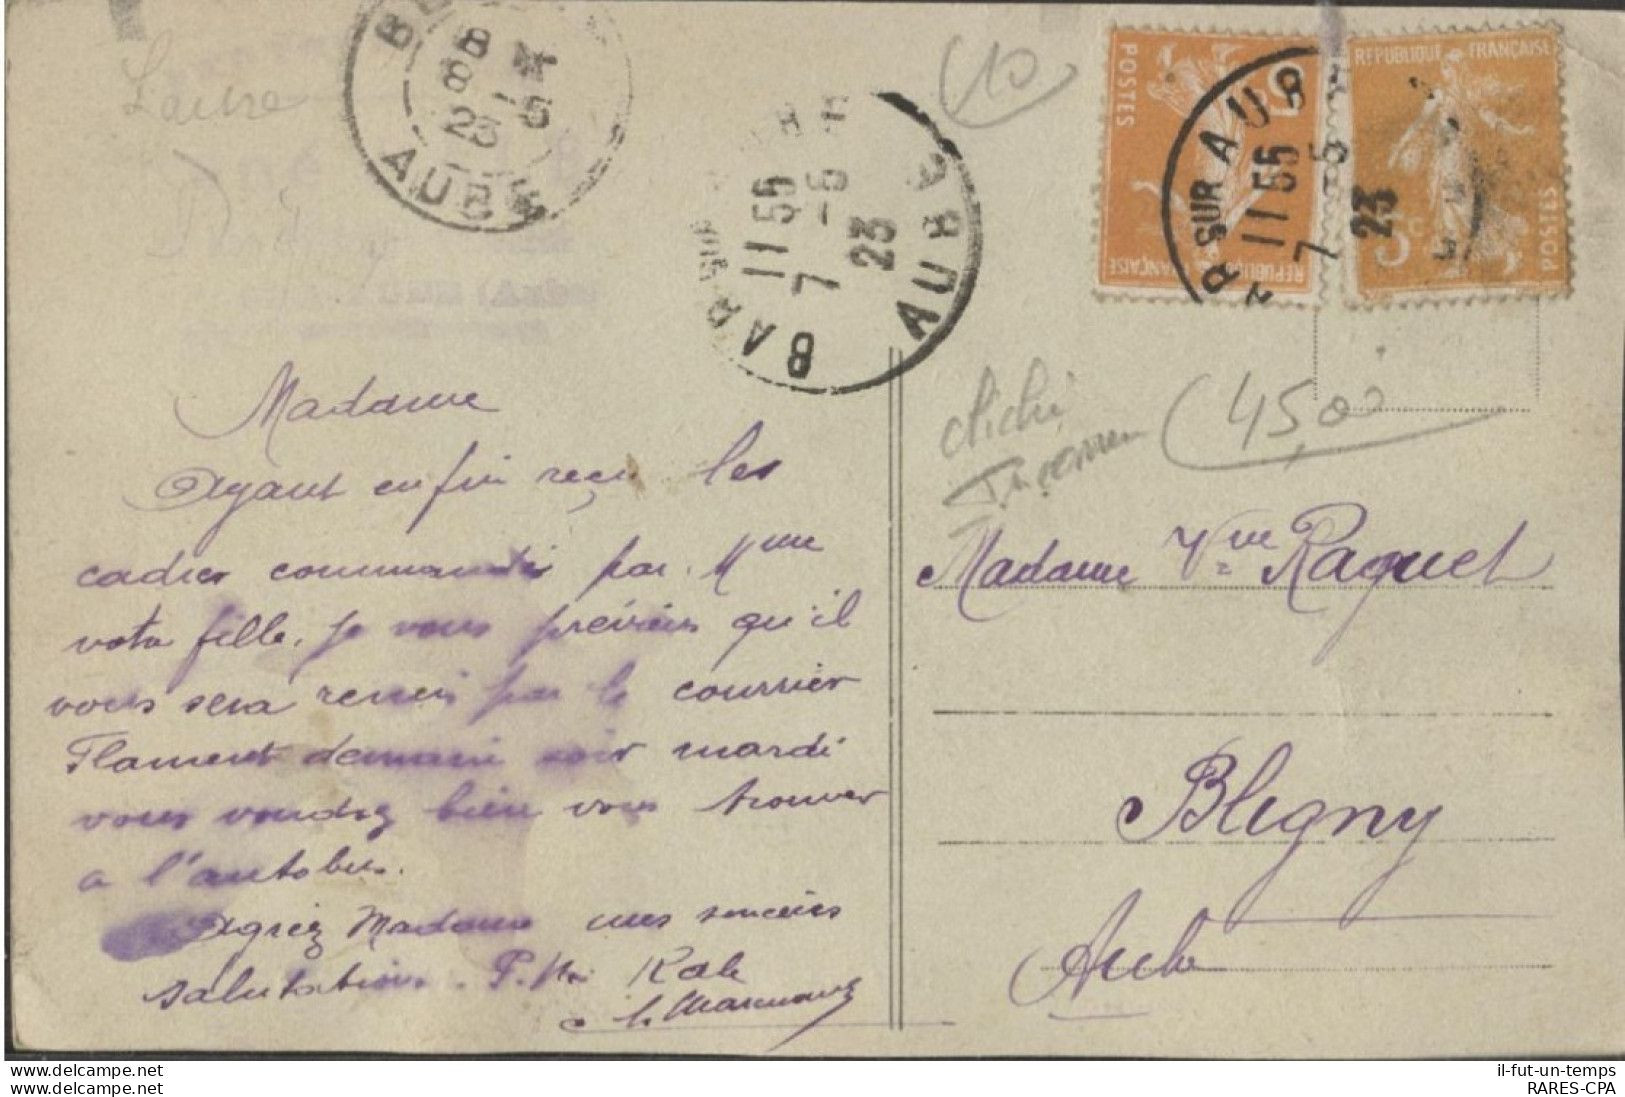 AUBE
8
8 - 5
23
BAR SUR AUBE
AUBE
11 55
7 - 5
23
10
POSTES
REPUBLIQUE FRANÇAISE
5
R SUR AUB
11 55
7 - 5
23
REPUBLIQUE FRANÇAISE
5c
POSTES
(AUBE)
cliché
45,00
Madame
Ayant enfin reçu les
cadres commandés par Mme
votre fille, je vous préviens qu'il
vous sera remis par le courrier
Flament demain soir mardi
vous voudrez bien vous trouver
a l'autobus.
Agréez Madame mes sincères
salutations. P.
Madame Vve Raguet
Bligny
Aube
delcampe.net
delcampe.net
il-fut-un-temps
RARES-CPA